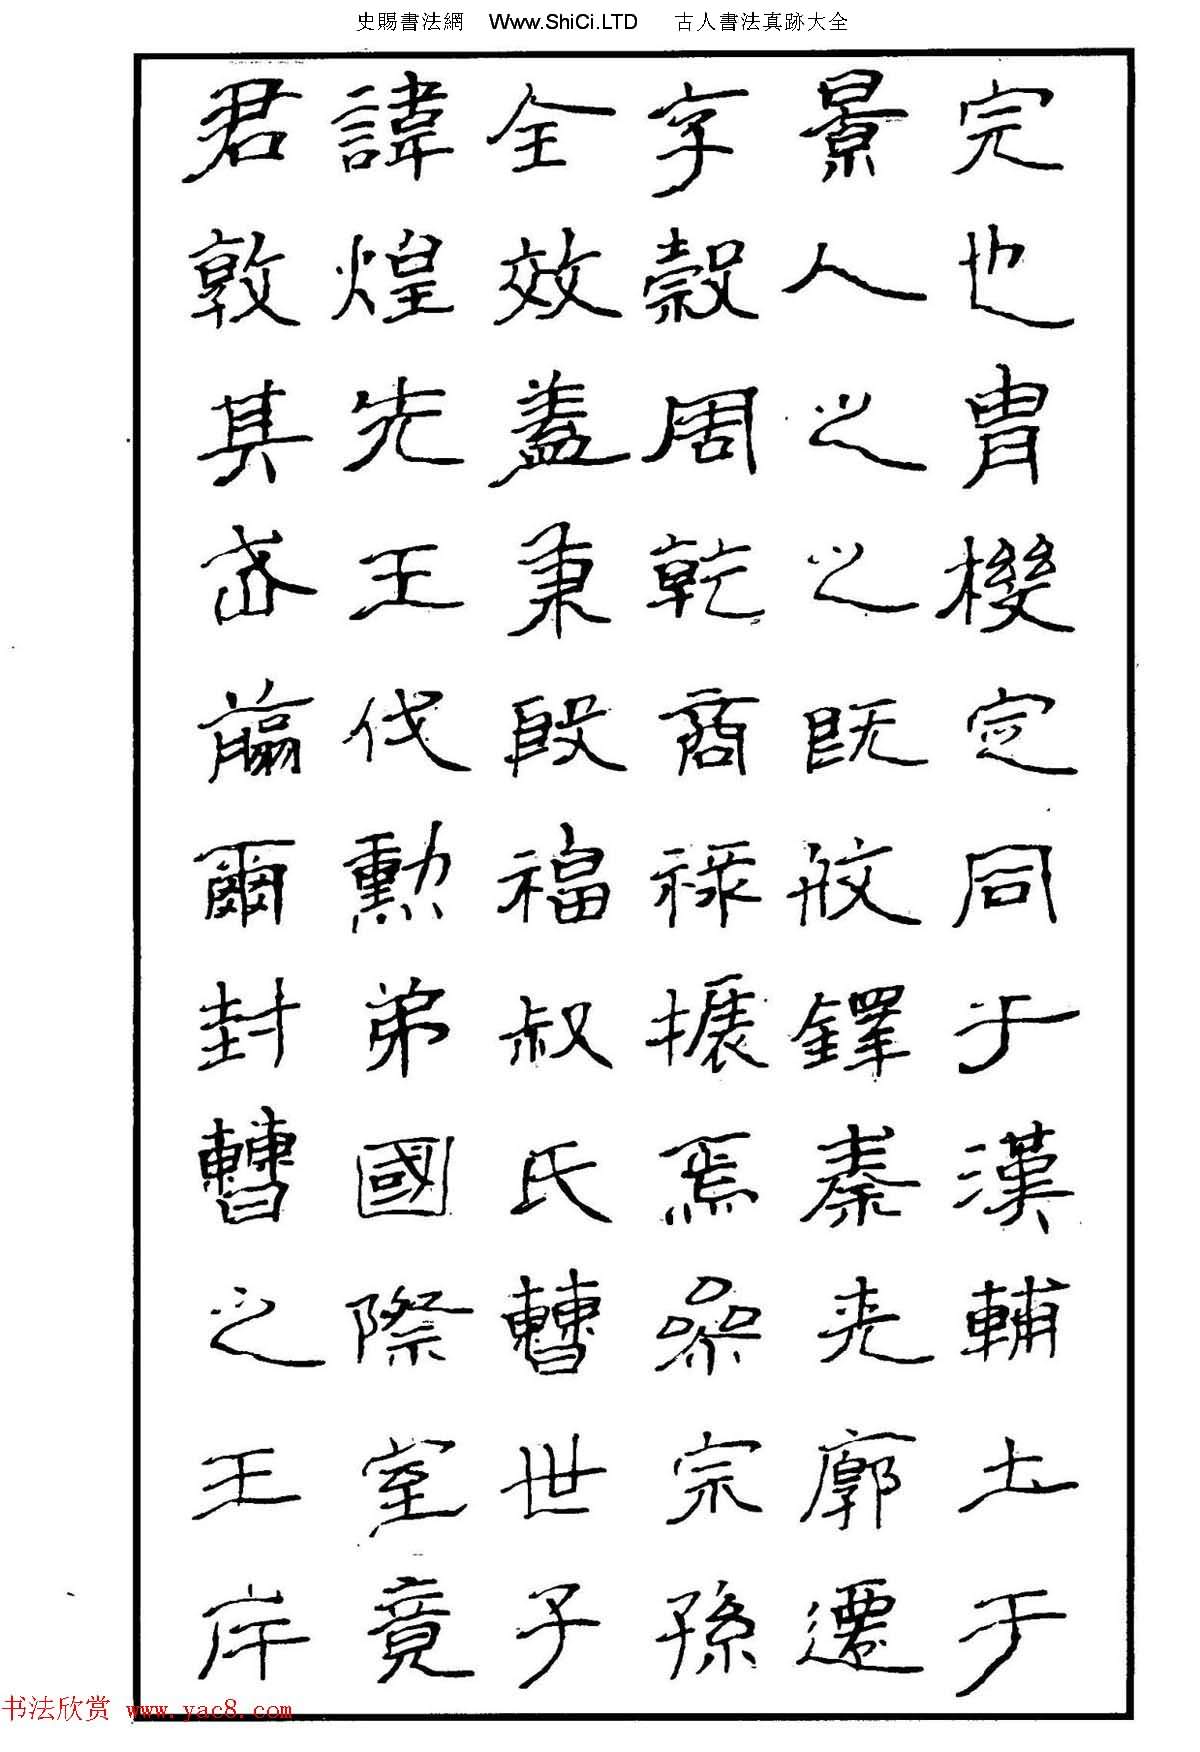 史賜書法網 Www.ShiCi.LTD 古人書法真跡大全
君諱全字景完
敦煌效穀人也
其先蓋周之胄
武王秉乾之機
翦伐殷商既定
爾勳福祿攸同
封弟叔振鐸于
曹國氏焉秦漢
之際曹參夾輔
王室世宗廓土
斥竟子孫遷于
书法欣赏 www.yac8.com